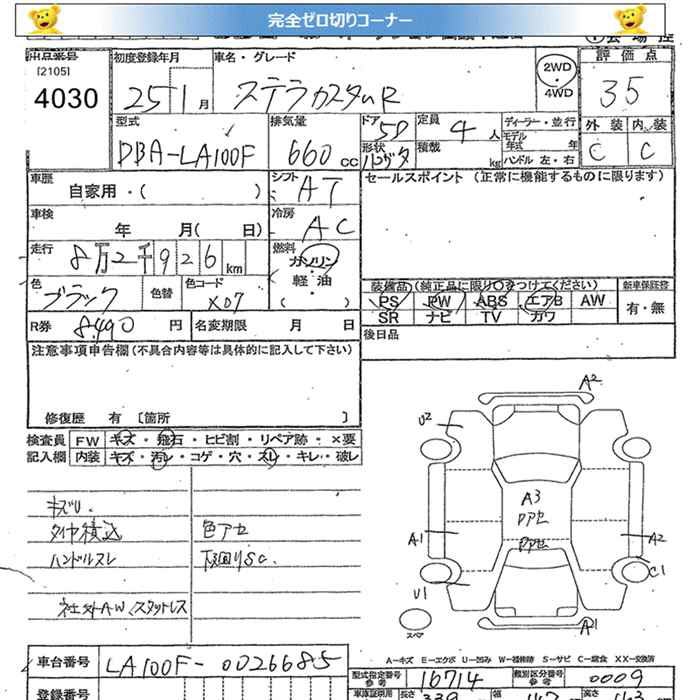 完全ゼロ切りコーナー
出品番号 初度登録年月 車名・グレード 評価点
[2105]
4030 25 1月 ステラカスタムR 2WD 4WD 35
型式 排気量 ドア 5D 定員 4人 ディーラー・並行 外装 内装
DBA-LA100F 660cc 形状 ハッチバ 積載 kg モデル年式 年 C C
ハンドル 左・右
車歴 自家用・( ) シフト AT セールスポイント (正常に機能するものに限ります)
車検 年 月( 日) 冷房 AC
走行 8万2千926km 燃料 ガソリン 軽・油 ( )
色 ブラック 色替 色コード X07 装備品 (純正品に限り○をつけてください) 新車保証書
PS PW ABS エアB AW 有・無
SR ナビ TV カワ
R券 8,490円 名変期限 月 日 後日品
注意事項申告欄 (不具合内容等は具体的に記入して下さい)
修復歴 有 [箇所 ]
検査員 FW キズ・飛石・ヒビ割・リペア跡・×要
記入欄 内装 キズ・汚レ・コゲ・穴・スレ・キレ・破レ
キズU
タイヤ積込 色アセ
ハンドルスレ 下回りSC.
社外AW/スタットレス
A2
U2
A3
Pアセ
Pアセ
A1 A2
C1
U1
A1
スペア
A-キズ E-エクボ U-凹み W-補修跡 S-サビ C-腐食 XX-交換済
車台番号 LA100F-0026685 型式指定番号 参考 16714 類別区分番号 参考 0009
登録番号 車庫証明用 長さ 339 幅 147 高さ 163